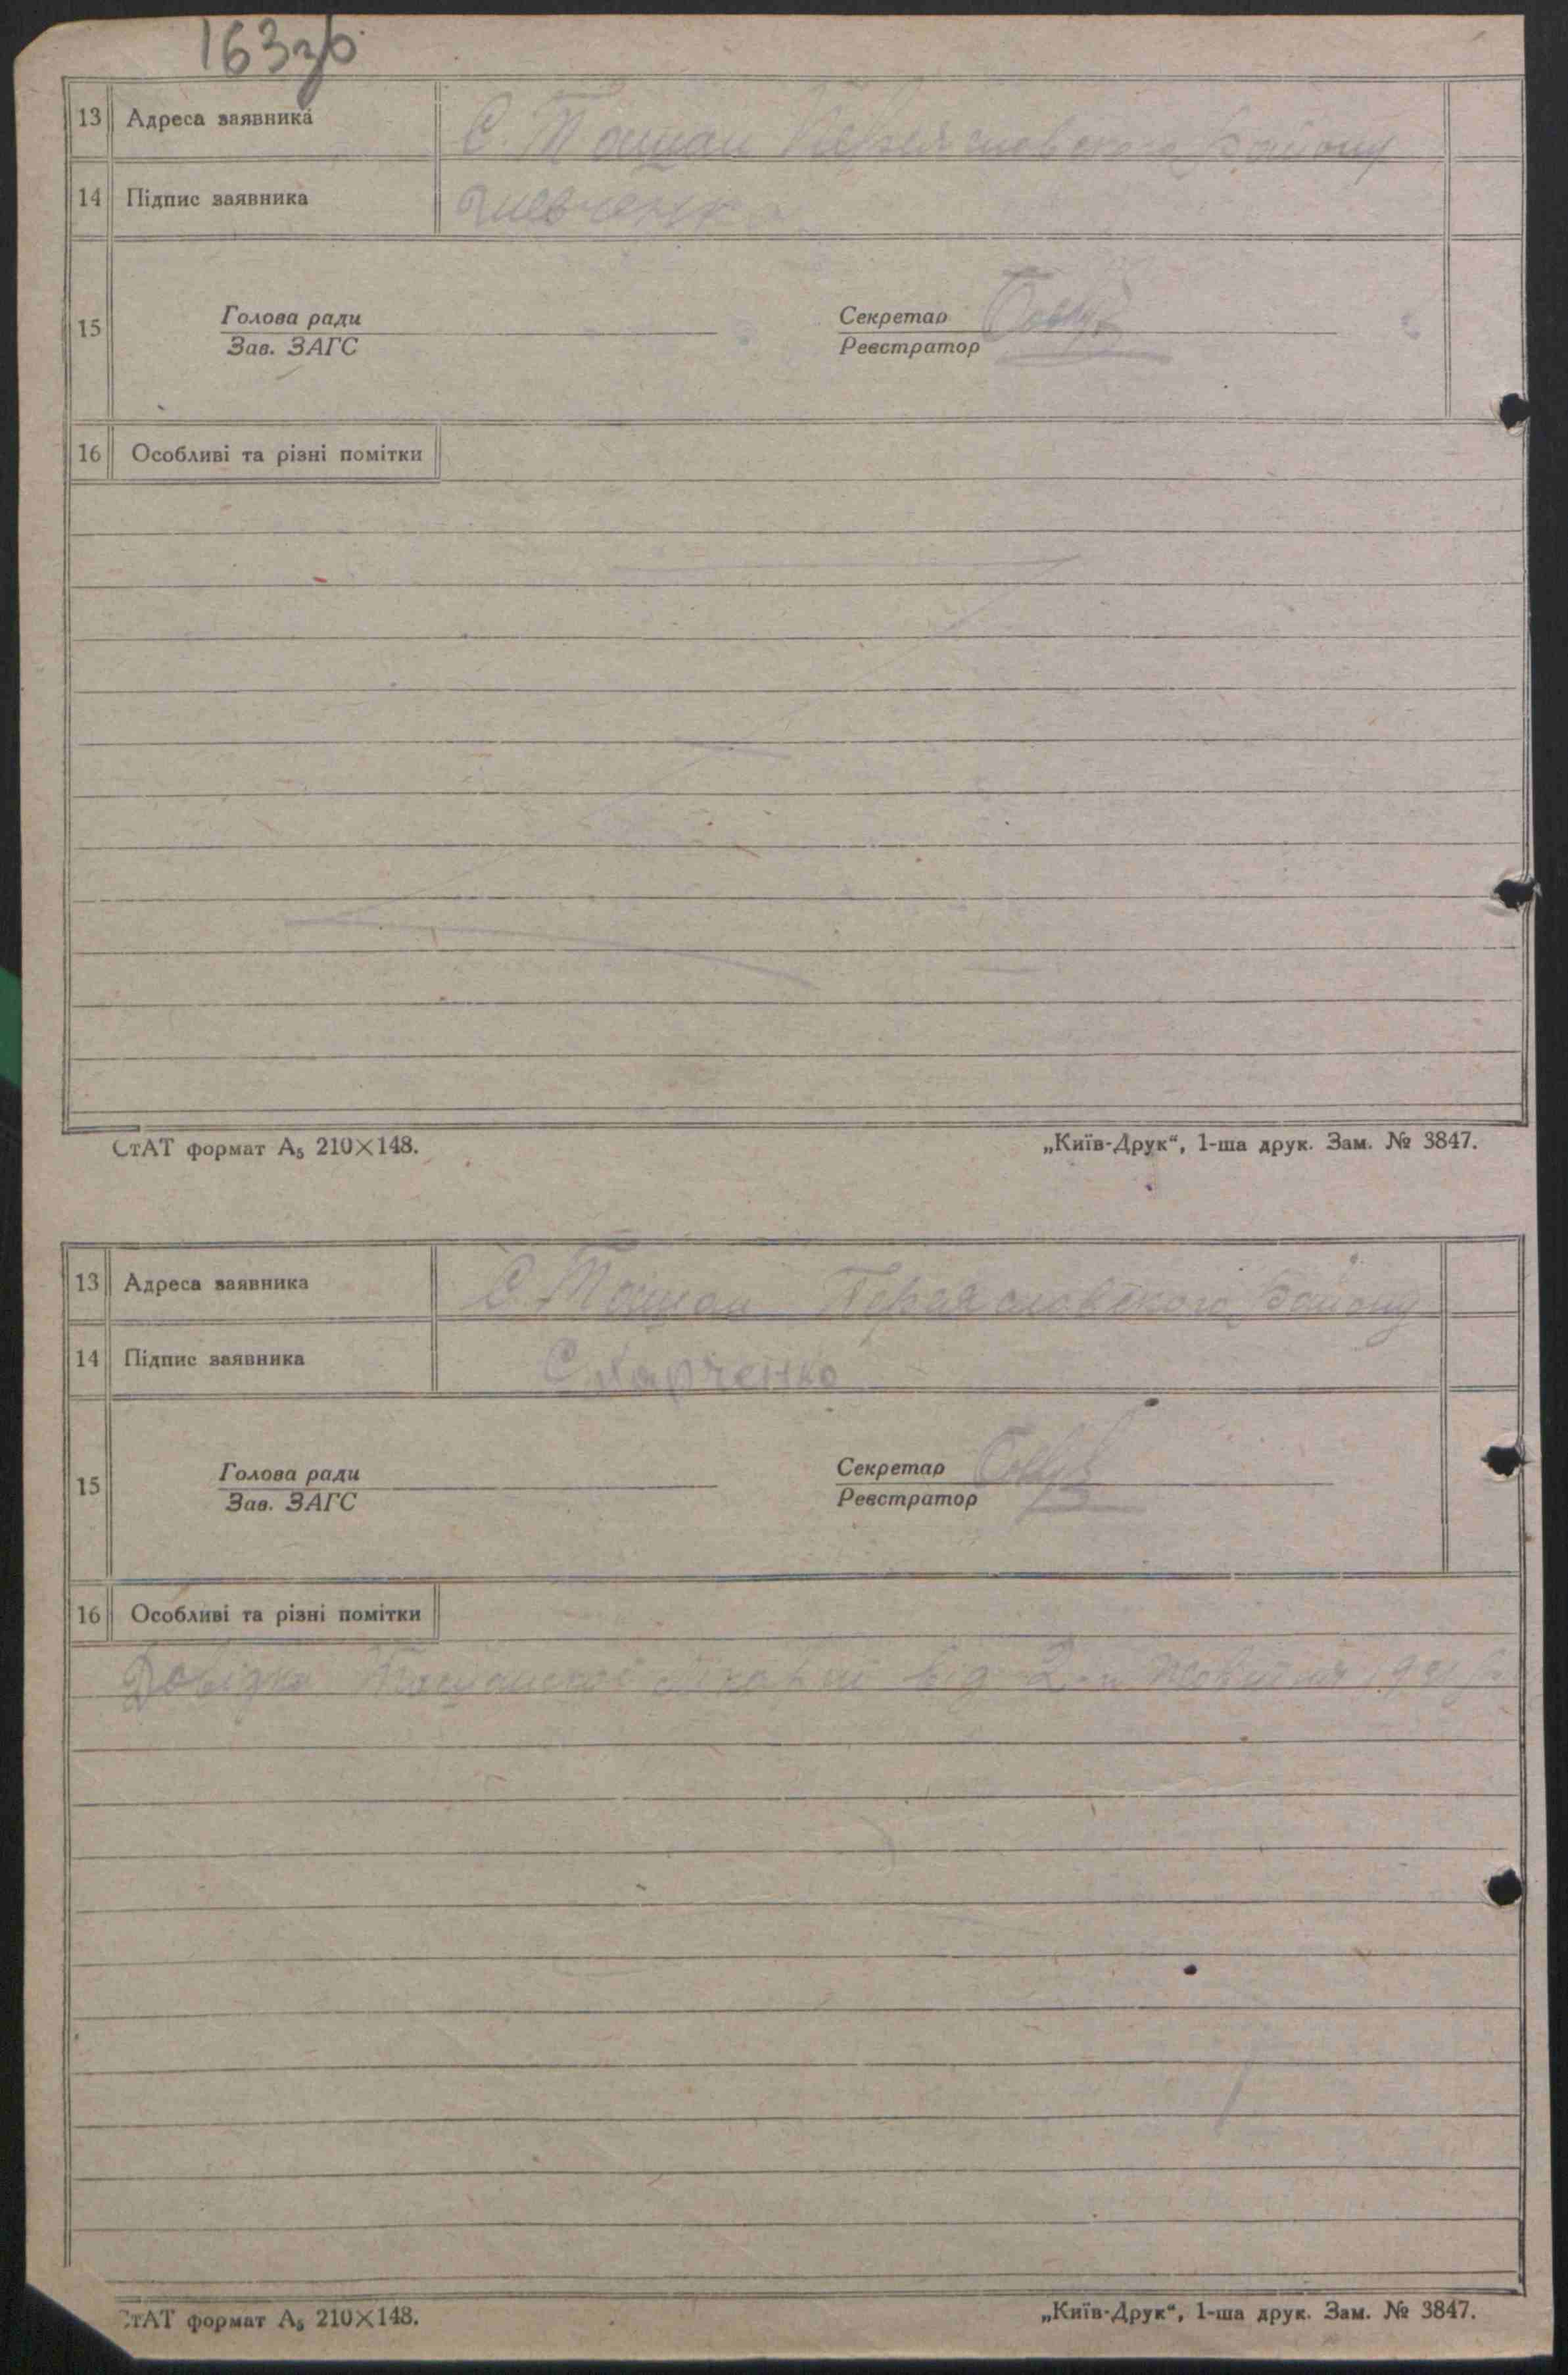 163зб
13 Адреса заявника С. Ташан Переяславского району
14 Підпис заявника Шевченко
15 Голова ради Секретар
Зав. ЗАГС Реєстратор
16 Особливі та різні помітки
СтАТ формат А₅ 210×148. „Київ-Друк“, 1-ша друк. Зам. № 3847.
13 Адреса заявника С. Ташан Переяславского району
14 Підпис заявника Харченко
15 Голова ради Секретар
Зав. ЗАГС Реєстратор
16 Особливі та різні помітки
Довідка Ташанскої лікарні від 2-го жовтня
СтАТ формат А₅ 210×148. „Київ-Друк“, 1-ша друк. Зам. № 3847.